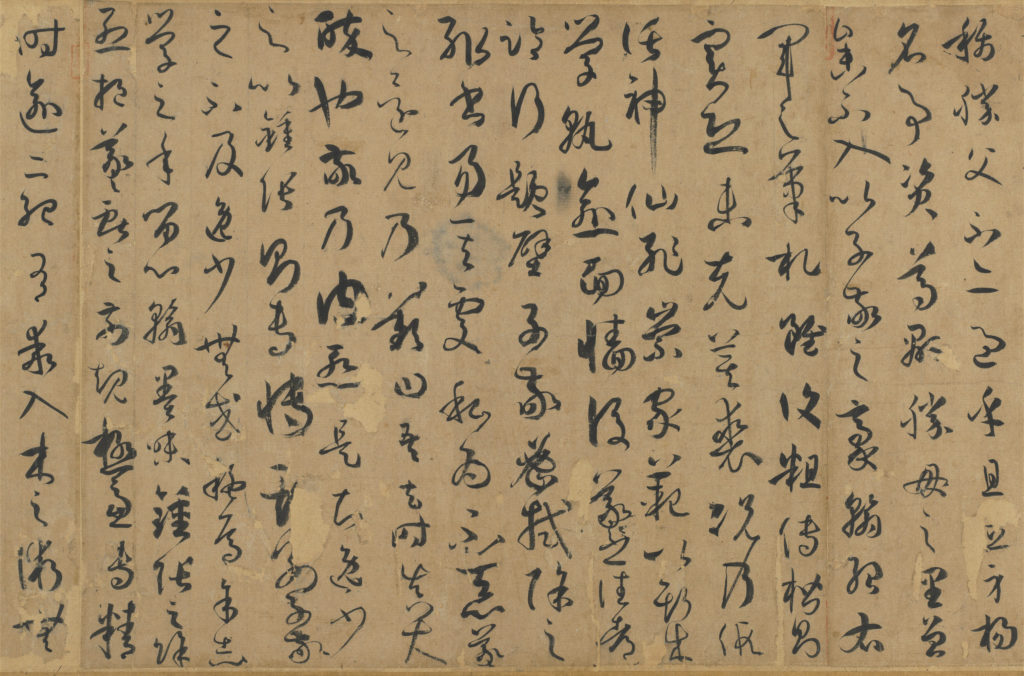 稱勝父不亦過乎且立身揚
名事資尊顯勝母之里曾
參不入以子敬之豪翰紹右
軍之筆札雖復粗傳楷則
實恐未克箕裘況乃假
託神仙恥崇家範以斯成
學孰愈面牆後羲之往都
臨行題壁子敬密拭除之
輒書易其處私為不惡羲
之還見乃歎曰吾去時真大
醉也敬乃內慚是知逸少
之比鍾張則專博斯別子敬
之不及逸少無或疑焉余志
學之年留心翰墨味鍾張之餘
烈挹羲獻之前規極慮專精
時逾二紀有乖入木之術無